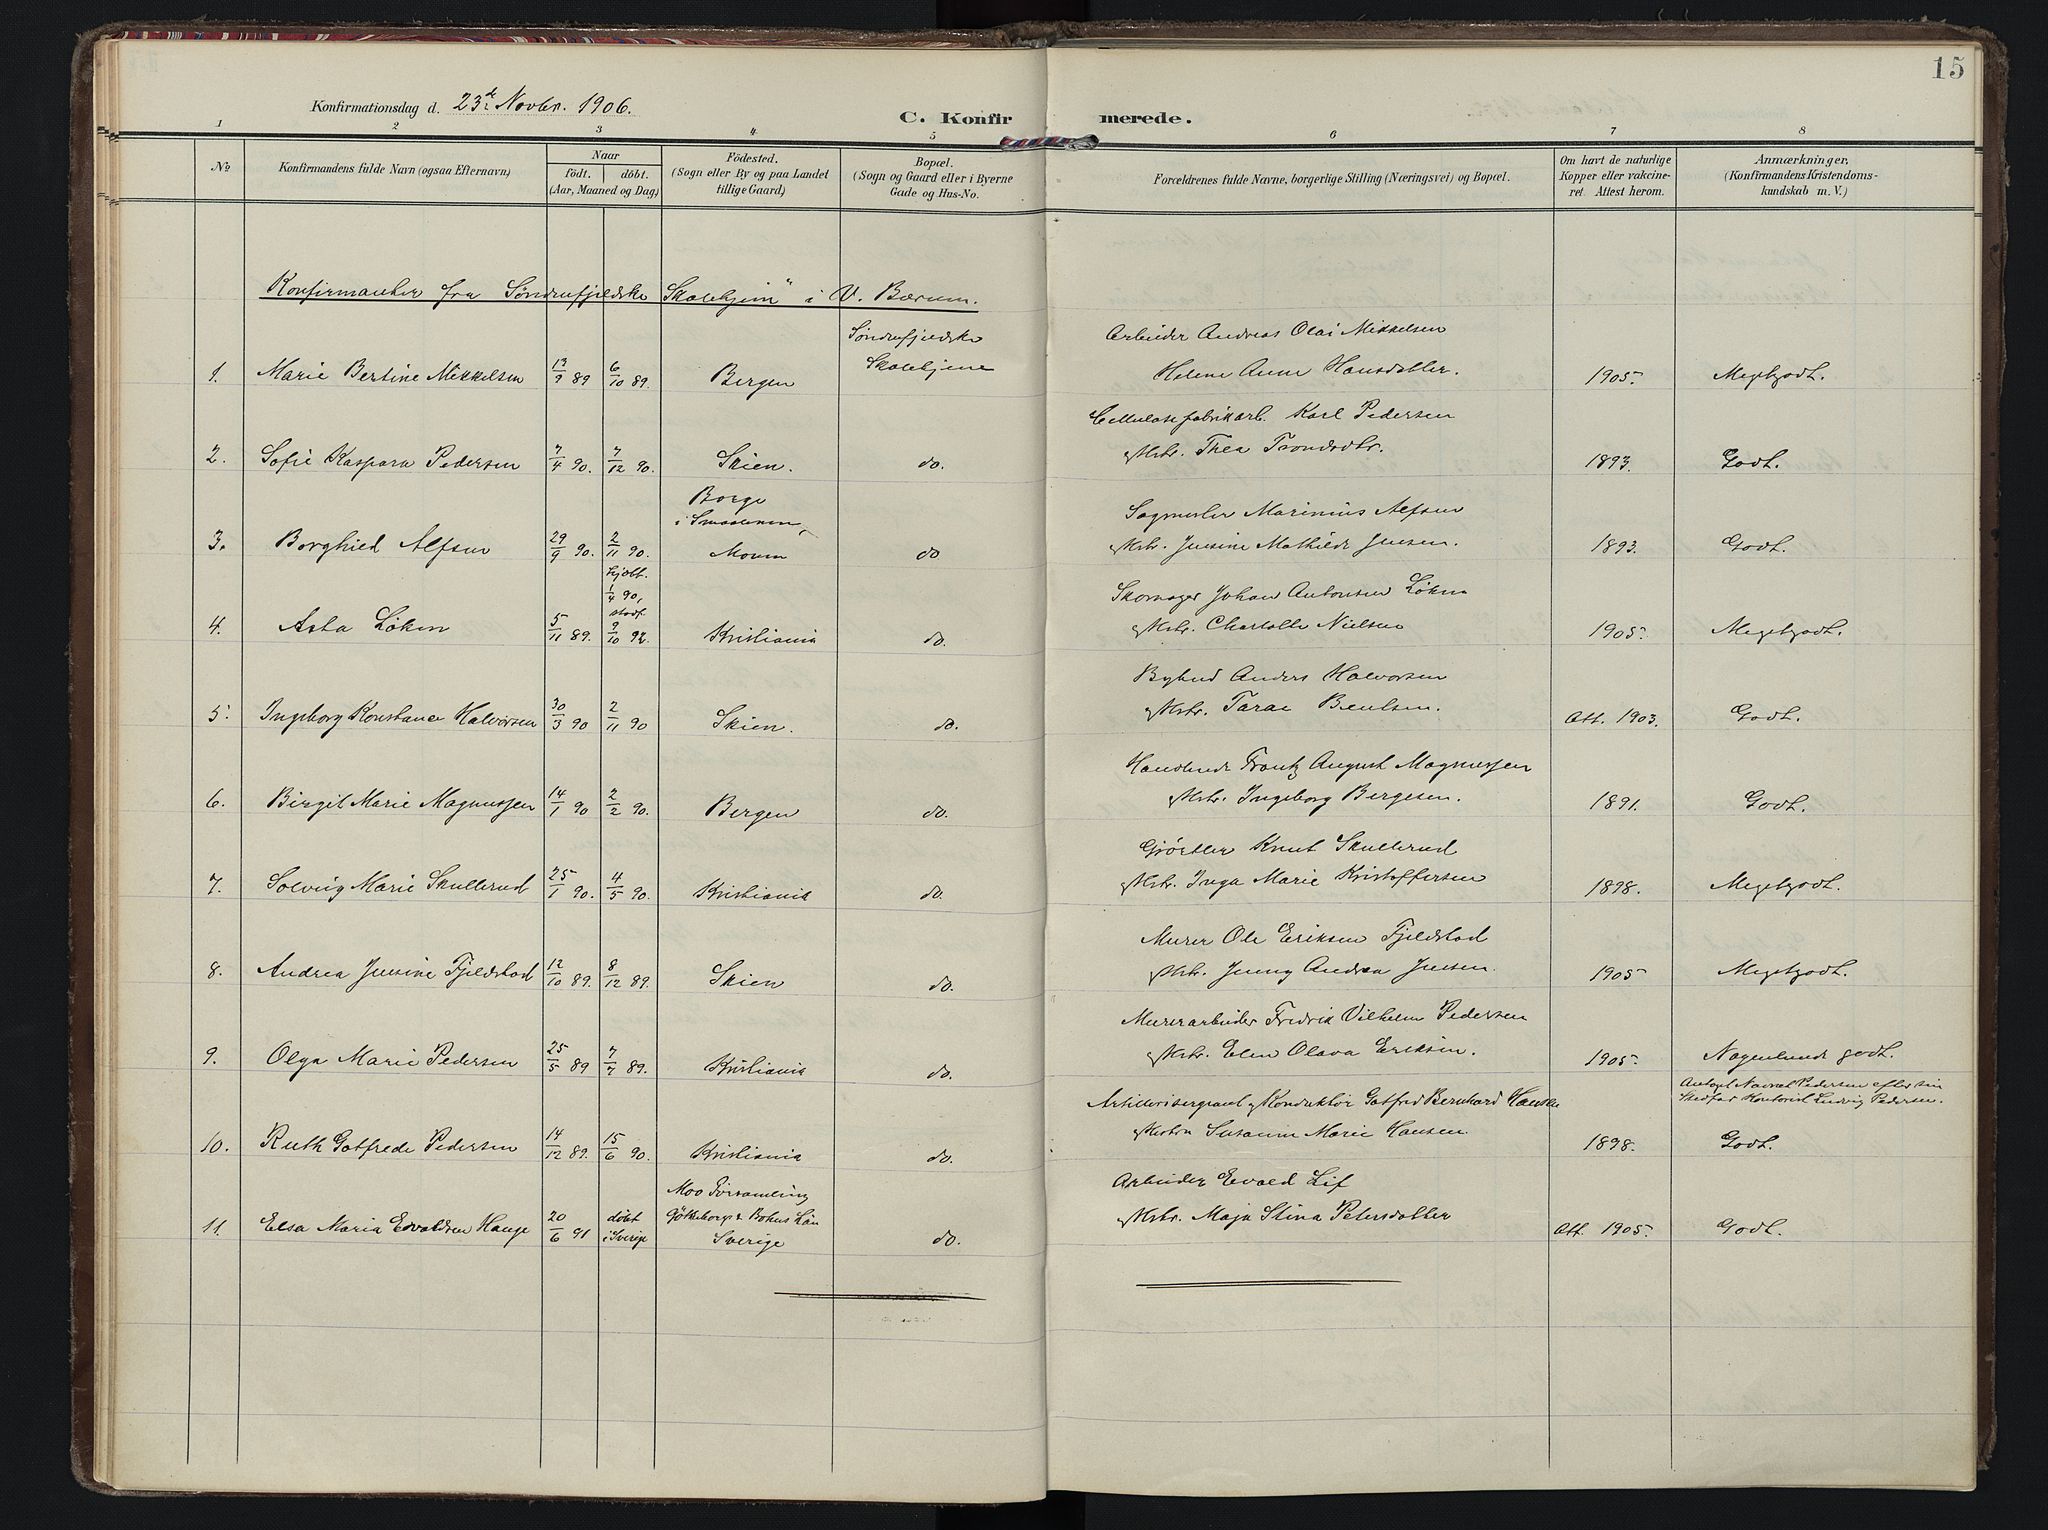 15
Konfirmationsdag d. 23de Novbr. 1906.
C. Konfirmerede.
1 2 3 4 5 6 7 8
No Konfirmandens fulde Navn (ogsaa Efternavn) Naar födt. döbt. (Aar, Maaned og Dag) Födested. (Sogn eller By og paa Landet tillige Gaard) Bopæl. (Sogn og Gaard eller i Byerne Gade og Hus-No. Forældrenes fulde Navne, borgerlige Stilling (Næringsvei) og Bopæl. Om havt de naturlige Kopper eller vakcineret. Attest herom. Anmærkninger. (Konfirmandens Kristendomskundskab m. V.)
Konfirmanter fra Søndenfjeldske Skolehjem" i V. Bærum.
Søndenfjeldske
Arbeider Andreas Olai Mikkelsen
1. Marie Bertine Mikkelsen 13/9 89 6/10 89. Bergen Skolehjem Helene Anne Hansdatter. 1905. Megetgodt.
Cellulosefabrikarb. Karl Pedersen
2. Sofie Kaspara Pedersen 7/4 90. 7/12 90. Skien. do. og Hstr. Thea Trondsdtr. 1893. Godt.
Borge
i Smaalenene, Sagmester Marinius Alfsen
3. Borghild Alfsen 29/9 90. 2/11 90. Moum do og Hstr. Jensine Mathilde Jensen. 1893. Godt.
hjdbt.
1/4 90, Skomager Johan Antonsen Løken
stadf.
4. Asta Løken 5/11 89. 9/10 92. Kristiania do. og Hstr. Charlotte Nielsen 1905. Megetgodt.
Bybud Anders Halvorsen
5. Ingeborg Konstance Halvorsen 30/3 90 2/11 90 Skien. do. og Hstr. Taran Bentsen. Att. 1903. Godt.
Handlende Frantz August Magnussen
6. Birgit Marie Magnussen 14/1 90 2/2 90. Bergen do. og Hstr. Ingeborg Bergesen. 1891. Godt.
Grørtler Knut Skullerud
7. Solveig Marie Skullerud 25/1 90. 4/5 90. Kristiania do. og Hstr. Inga Marie Kristoffersen 1898. Megetgodt.
Murer Ole Eriksen Fjeldstad
8. Andrea Jensine Fjeldstad 12/10 89. 8/12 89. Skien do. og Hstr. Jenny Andrea Jensen. 1905 Megetgodt.
Murerarbeider Fredrik Vilhelm Pedersen
9. Olga Marie Pedersen 25/5 89 7/7 89. Kristiania do. og Hstr. Elen Olava Eriksen. 1905. Nogenlunde godt.
Artillerisergeant og Konduktør Gotfred Bernhard Hansen Antaget Navnet Pedersen efter sin
Stedfar Kontorist Ludvig Pedersen.
10. Ruth Gotfrede Pedersen 14/12 89. 15/6 90. Kristiania do. og Hstru Susanne Marie Hansen. 1898. Godt.
Moo Forsamling Arbeider Evald Lif
11. Elsa Maria Evaldsen Hauge 20/6 91 døbt Gøtheborgs & Bohus Län og Hstr. Maja Stina Petersdatter Att. 1905. Godt.
i Sverige Sverige do.